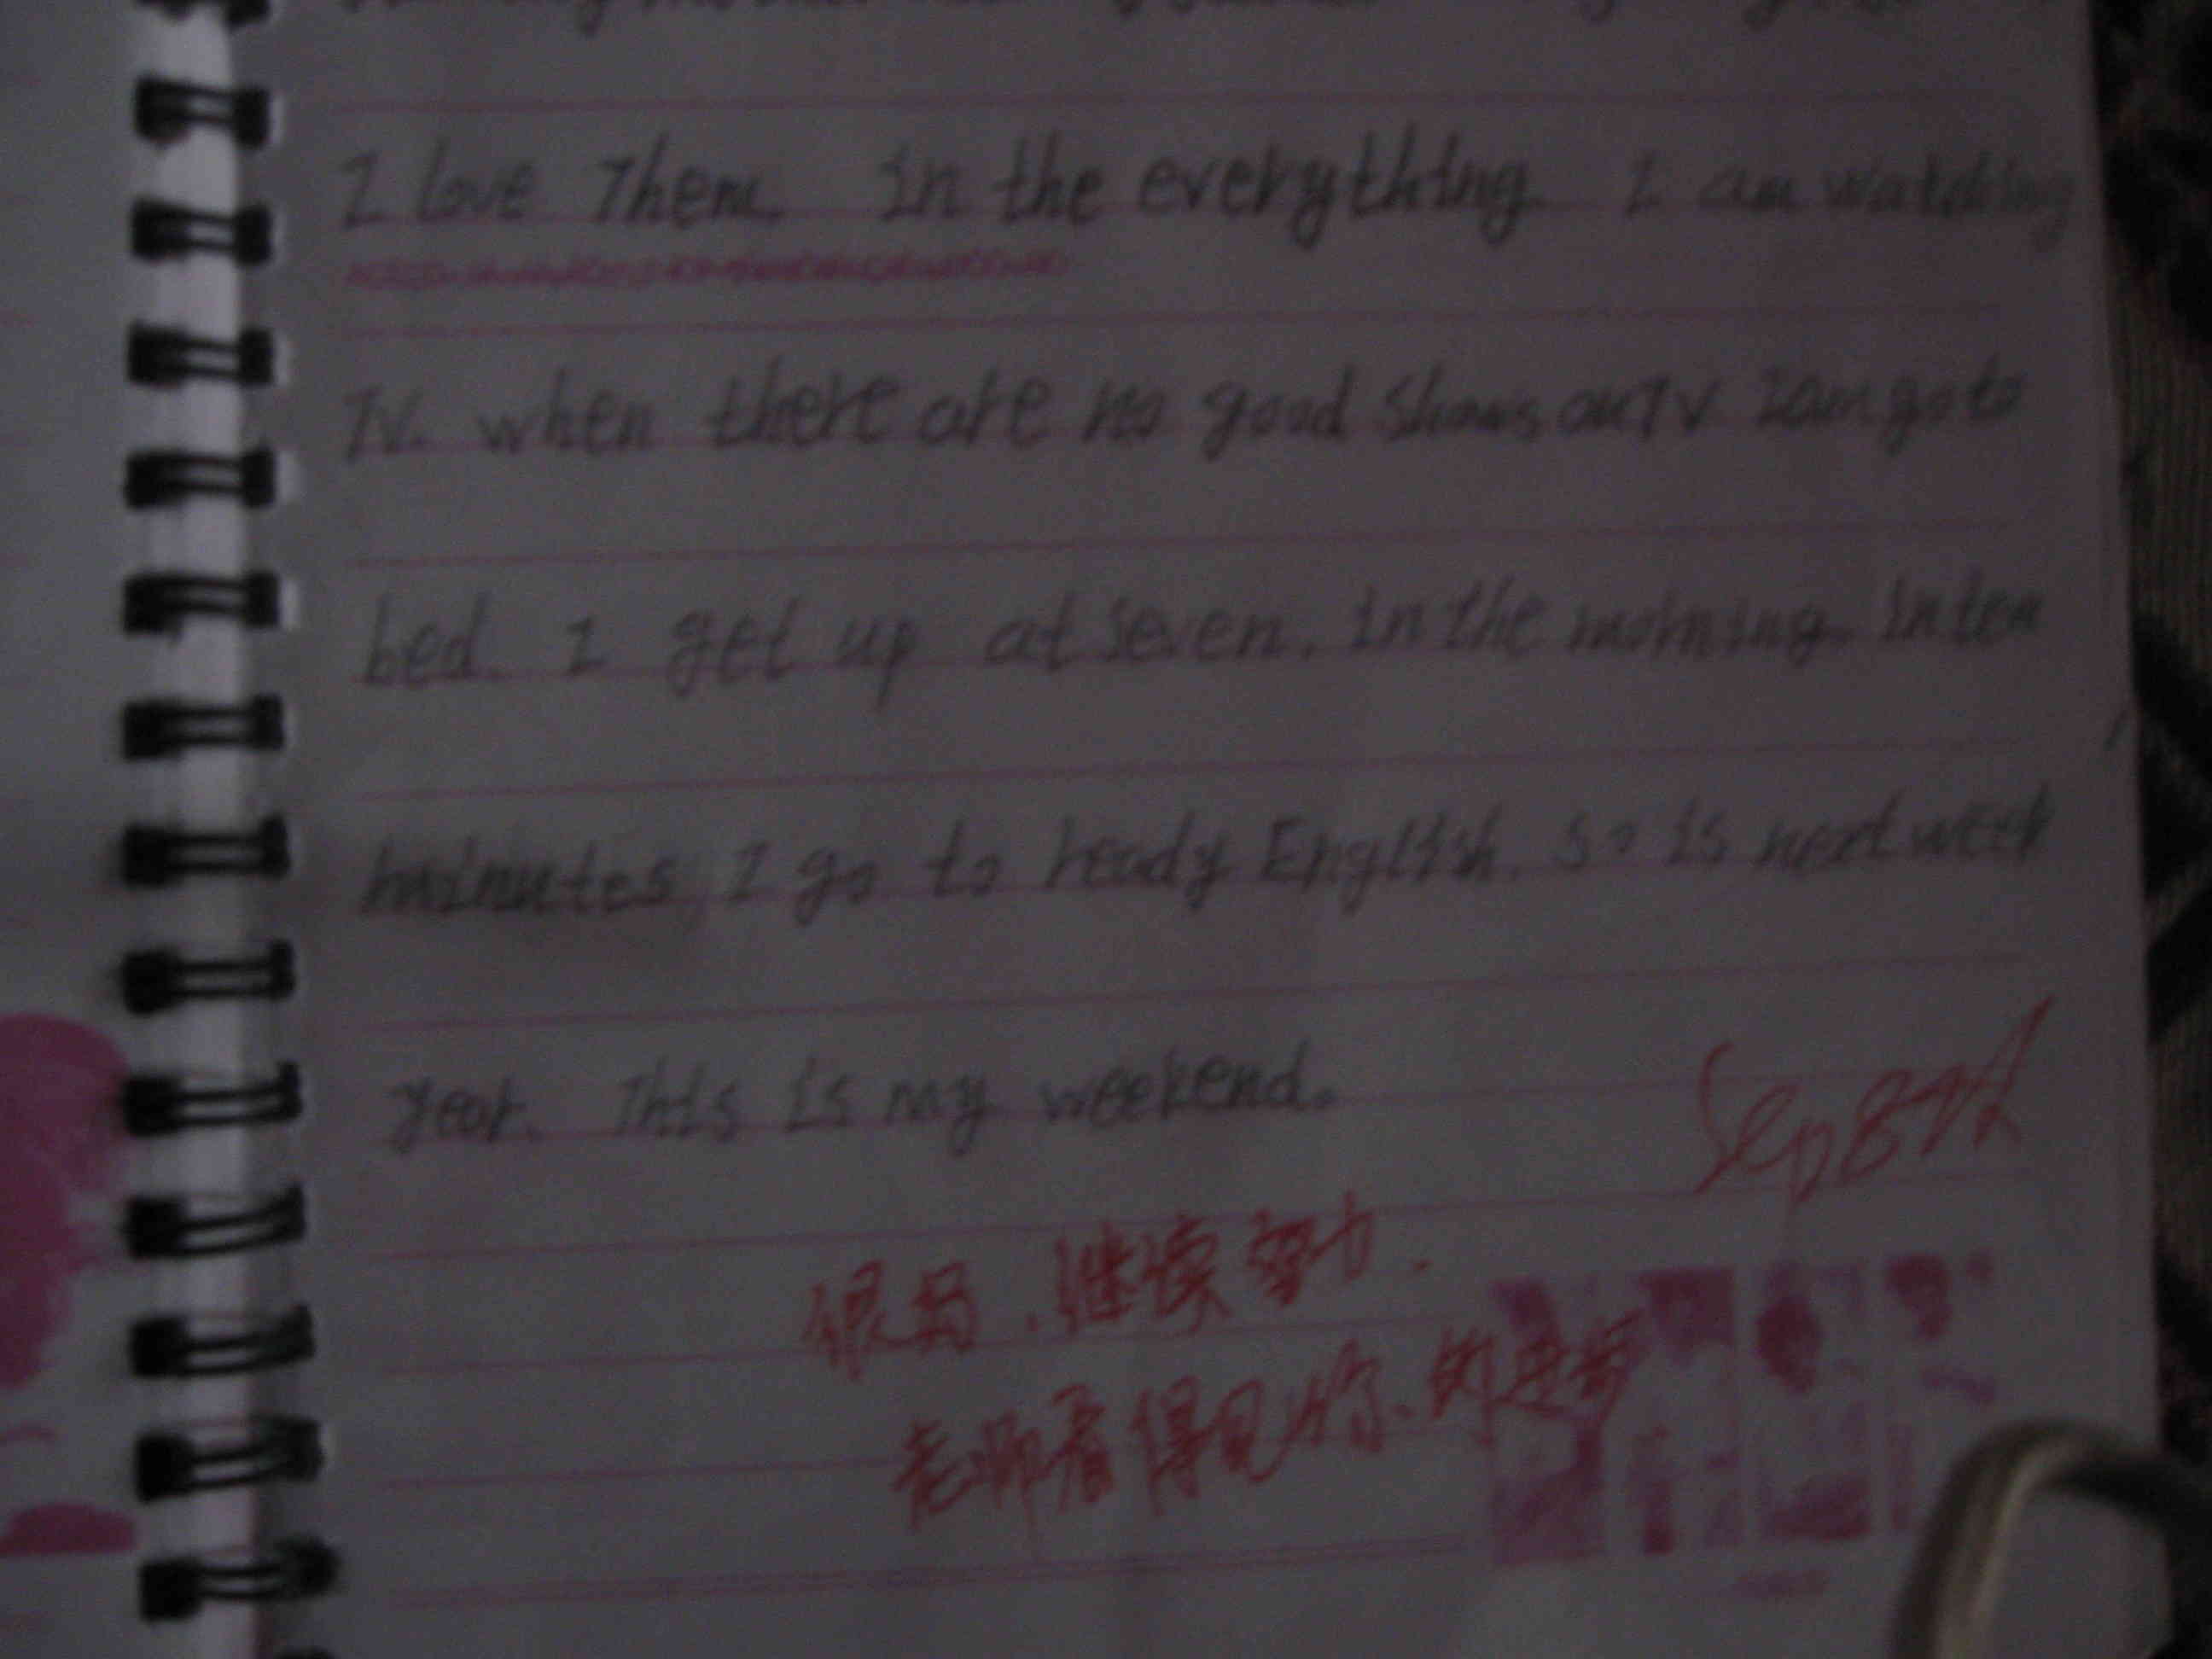 I love Them. in the everything I am watching
TV. when there are no good shows on TV I am go to
bed. I get up at seven. in the morning. in ten
minutes, I go to ready English. so is next week
year. This is my weekend.
Sep 8th
很好，继续努力.
老师看得见你的进步